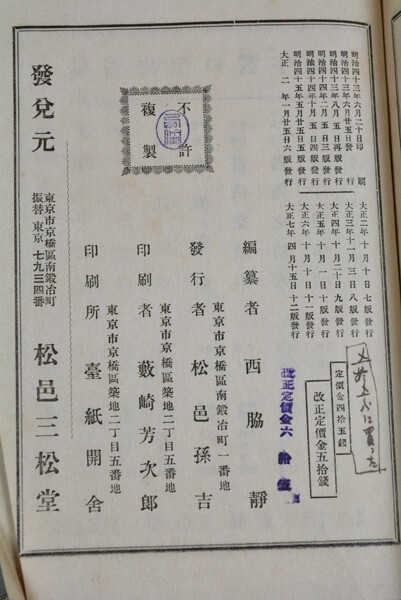 明治四十三年六月二十日印刷
明治四十三年六月廿五日發行
明治四十三年八月五日再版發行
明治四十四年二月五日三版發行
明治四十四年十月五日四版發行
明治四十五年五月廿五日五版發行
大正二年一月廿五日六版發行
大正二年十月十日七版發行
大正三年十一月三日八版發行
大正四年十月二十日九版發行
大正五年十月一日十版發行
大正六年十月十日十一版發行
大正七年四月十五日十二版發行
定價金四拾五錢
改正定價金五拾錢
改正定價金六拾錢
編纂者 西脇靜
東京市京橋區南鍛冶町一番地
發行者 松邑孫吉
東京市京橋區築地二丁目五番地
印刷者 藪崎芳次郎
東京市京橋區築地二丁目五番地
印刷所 臺紙開舍
不許
複製
發兌元
東京市京橋區南鍛冶町
振替東京七九三四番
松邑三松堂